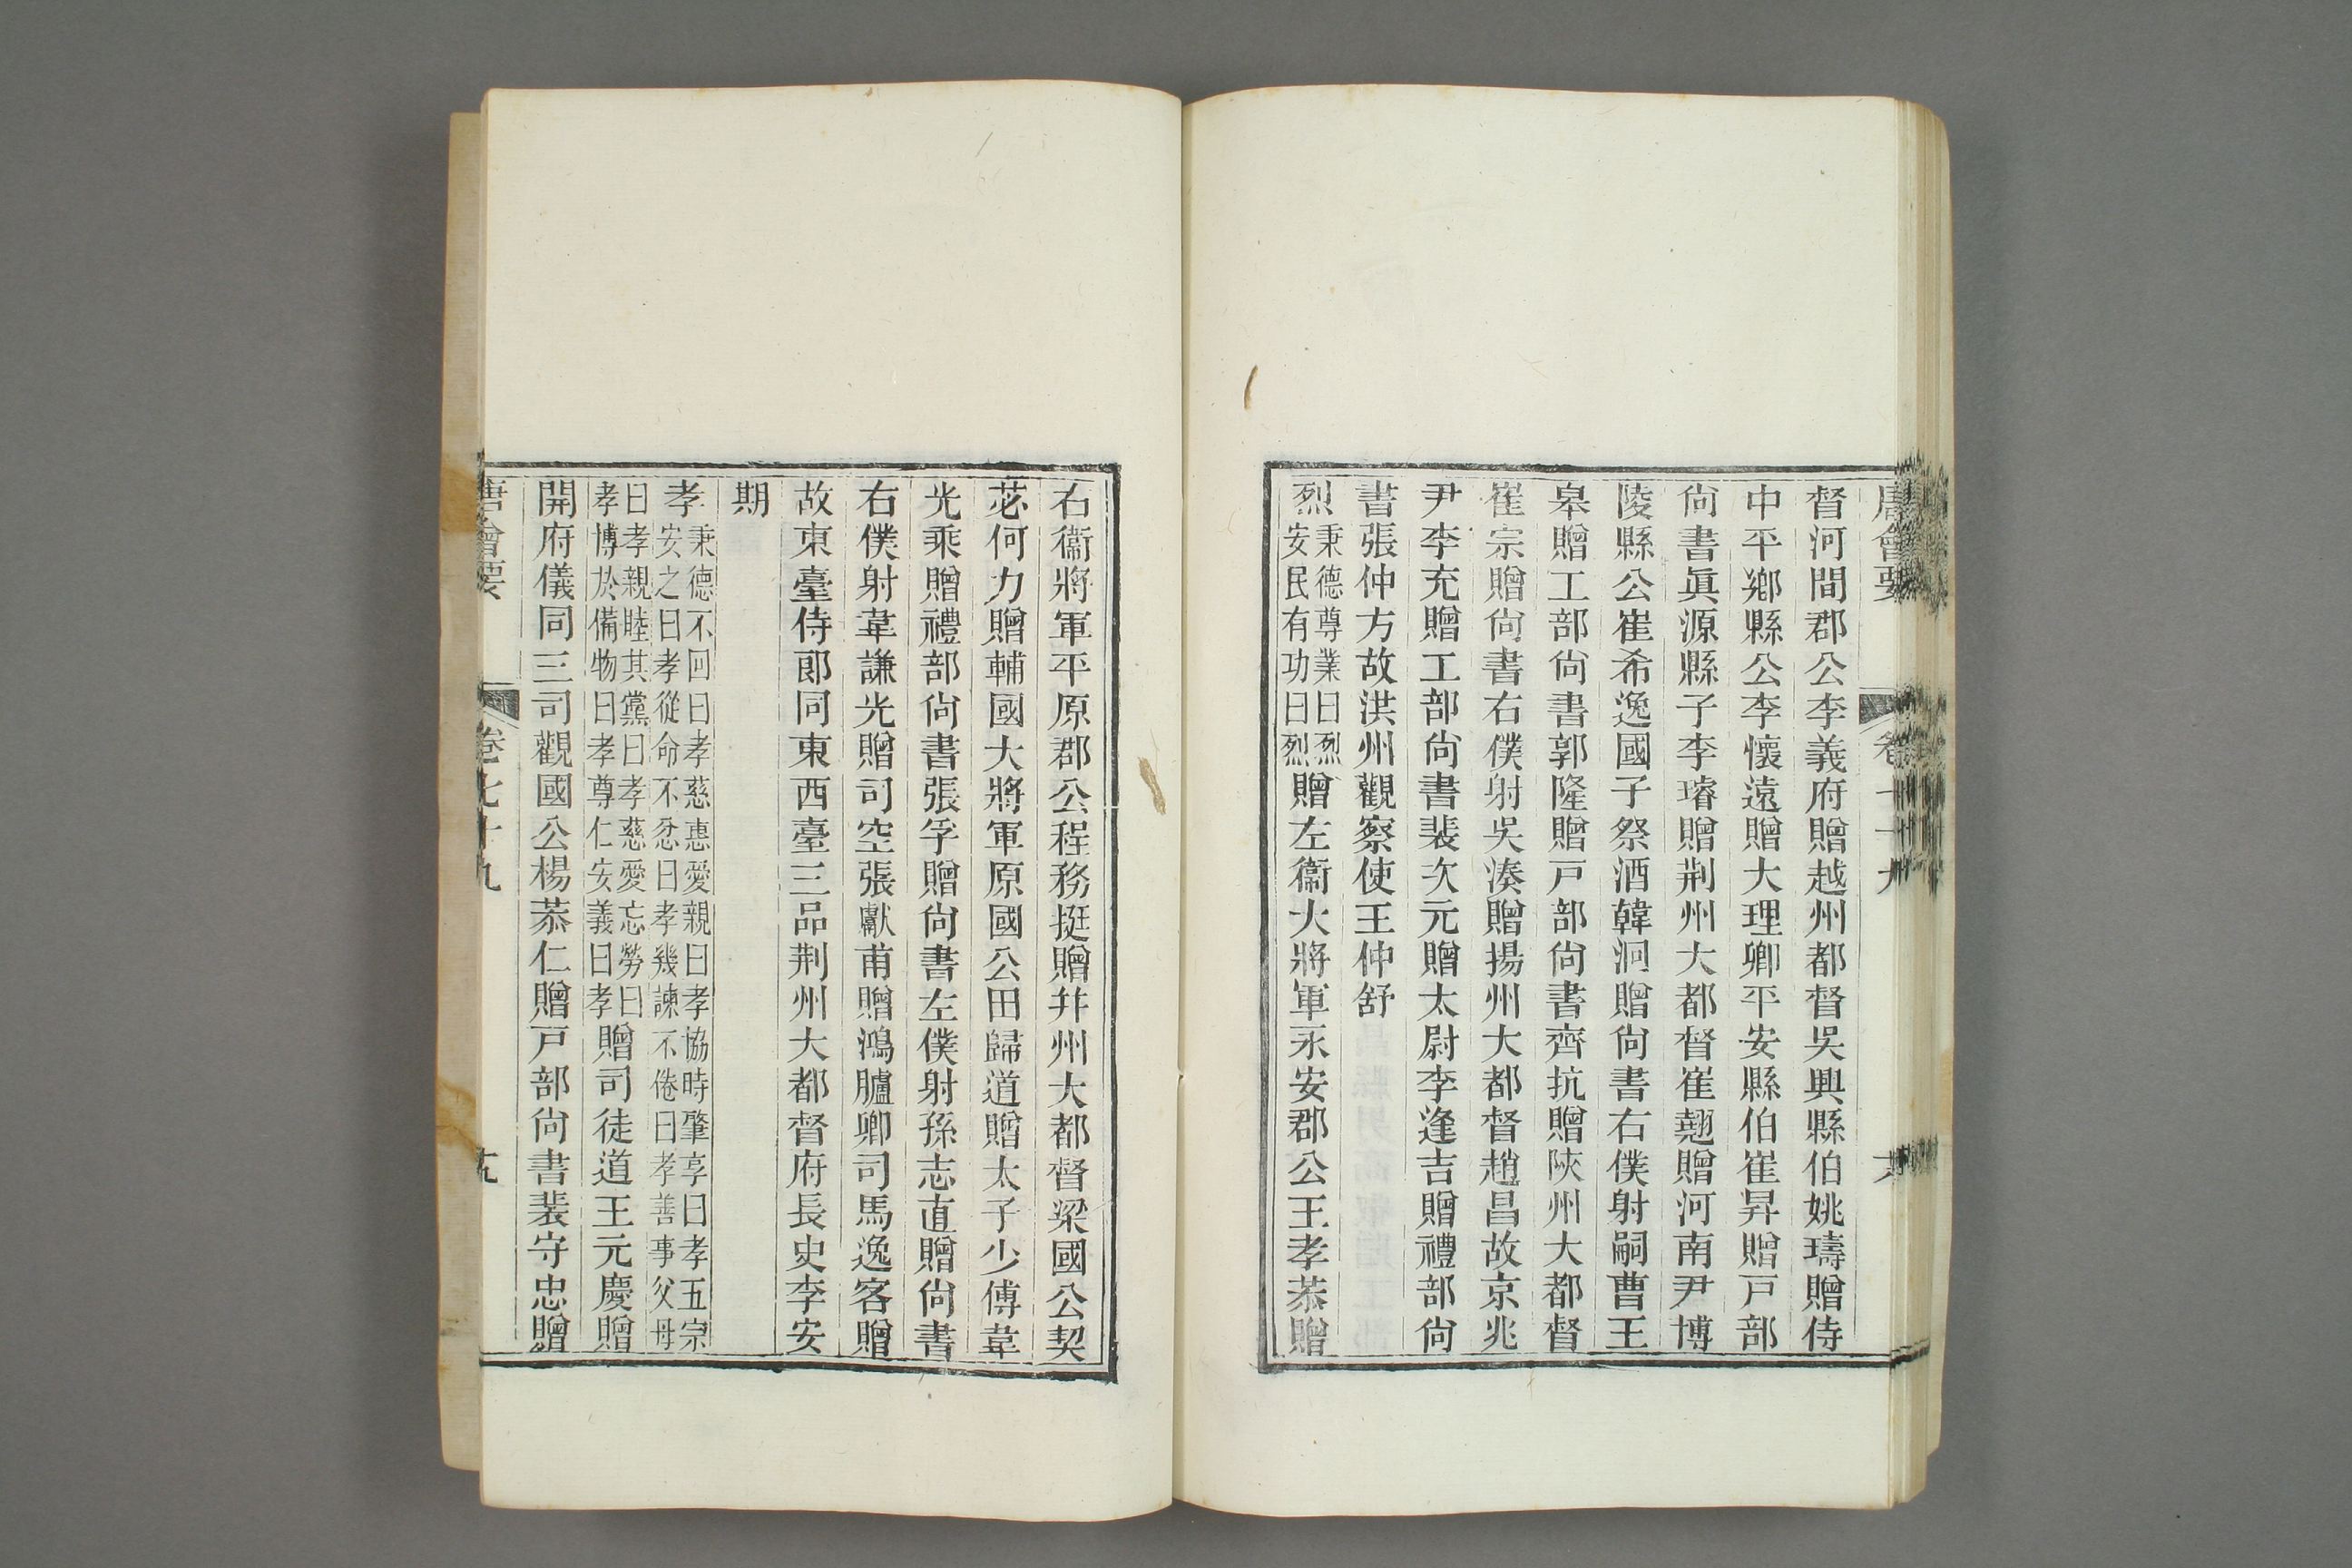 唐會要 卷七十九
督河間郡公李義府贈越州都督吳興縣伯姚璹贈侍
中平鄉縣公李懷遠贈大理卿平安縣伯崔昇贈戸部
尙書眞源縣子李璿贈荆州大都督崔翹贈河南尹博
陵縣公崔希逸國子祭酒韓洄贈尙書右僕射嗣曹王
皋贈工部尙書郭隆贈戸部尙書齊抗贈陝州大都督
崔宗贈尙書右僕射吳湊贈揚州大都督趙昌故京兆
尹李充贈工部尙書裴次元贈太尉李逢吉贈禮部尙
書張仲方故洪州觀察使王仲舒
烈秉德尊業曰烈安民有功曰烈贈左衞大將軍永安郡公王孝恭贈
右衞將軍平原郡公程務挺贈幷州大都督梁國公契
苾何力贈輔國大將軍原國公田歸道贈太子少傅韋
光乘贈禮部尙書張孚贈尙書左僕射孫志直贈尙書
右僕射韋謙光贈司空張獻甫贈鴻臚卿司馬逸客贈
故東臺侍郞同東西臺三品荆州大都督府長史李安
期
孝秉德不回曰孝慈惠愛親曰孝協時肇享曰孝五宗安之曰孝從命不忿曰孝幾諫不倦曰孝善事父母
曰孝親睦其黨曰孝慈愛忘勞曰孝博於備物曰孝尊仁安義曰孝贈司徒道王元慶贈
開府儀同三司觀國公楊恭仁贈戸部尙書裴守忠贈
唐會要 卷七十九